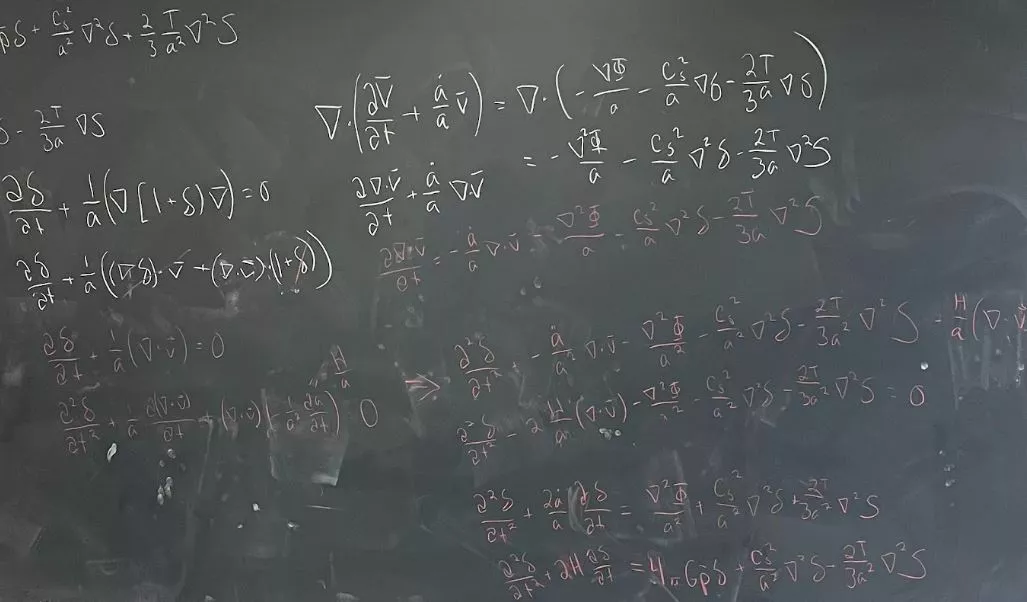 ρ̄δ + c_s²/a² ∇²δ + 2/3 T/a² ∇²S
δ - 2T/3a ∇S
∂δ/∂t + 1/a (∇[1+δ)v̄) = 0
∂δ/∂t + 1/a ((∇δ)·v̄ + (∇·v̄)·(1+δ))
∂δ/∂t + 1/a (∇·v̄) = 0
H/a
∂²δ/∂t² + 1/a ∂(∇·v̄)/∂t + (∇·v̄)(-1/a² ∂a/∂t) = 0
∇·(∂v̄/∂t + ȧ/a v̄) = ∇·(-∇Φ/a - c_s²/a ∇δ - 2T/3a ∇S)
= -∇²Φ/a - c_s²/a ∇²δ - 2T/3a ∇²S
∂∇·v̄/∂t + ȧ/a ∇·v̄
∂∇·v̄/∂t = -ȧ/a ∇·v̄ - ∇²Φ/a - c_s²/a ∇²δ - 2T/3a ∇²S
⇒ ∂²δ/∂t² + -ȧ/a² ∇·v̄ - ∇²Φ/a² - c_s²/a² ∇²δ - 2T/3a² ∇²S - H/a (∇·v̄
∂²δ/∂t² - 2 H/a (∇·v̄) - ∇²Φ/a² - c_s²/a² ∇²δ - 2T/3a² ∇²S = 0
∂²δ/∂t² + 2ȧ/a ∂δ/∂t = ∇²Φ/a² + c_s²/a² ∇²δ + 2T/3a² ∇²S
∂²δ/∂t² + 2H ∂δ/∂t = 4πGρ̄δ + c_s²/a² ∇²δ - 2T/3a² ∇²S